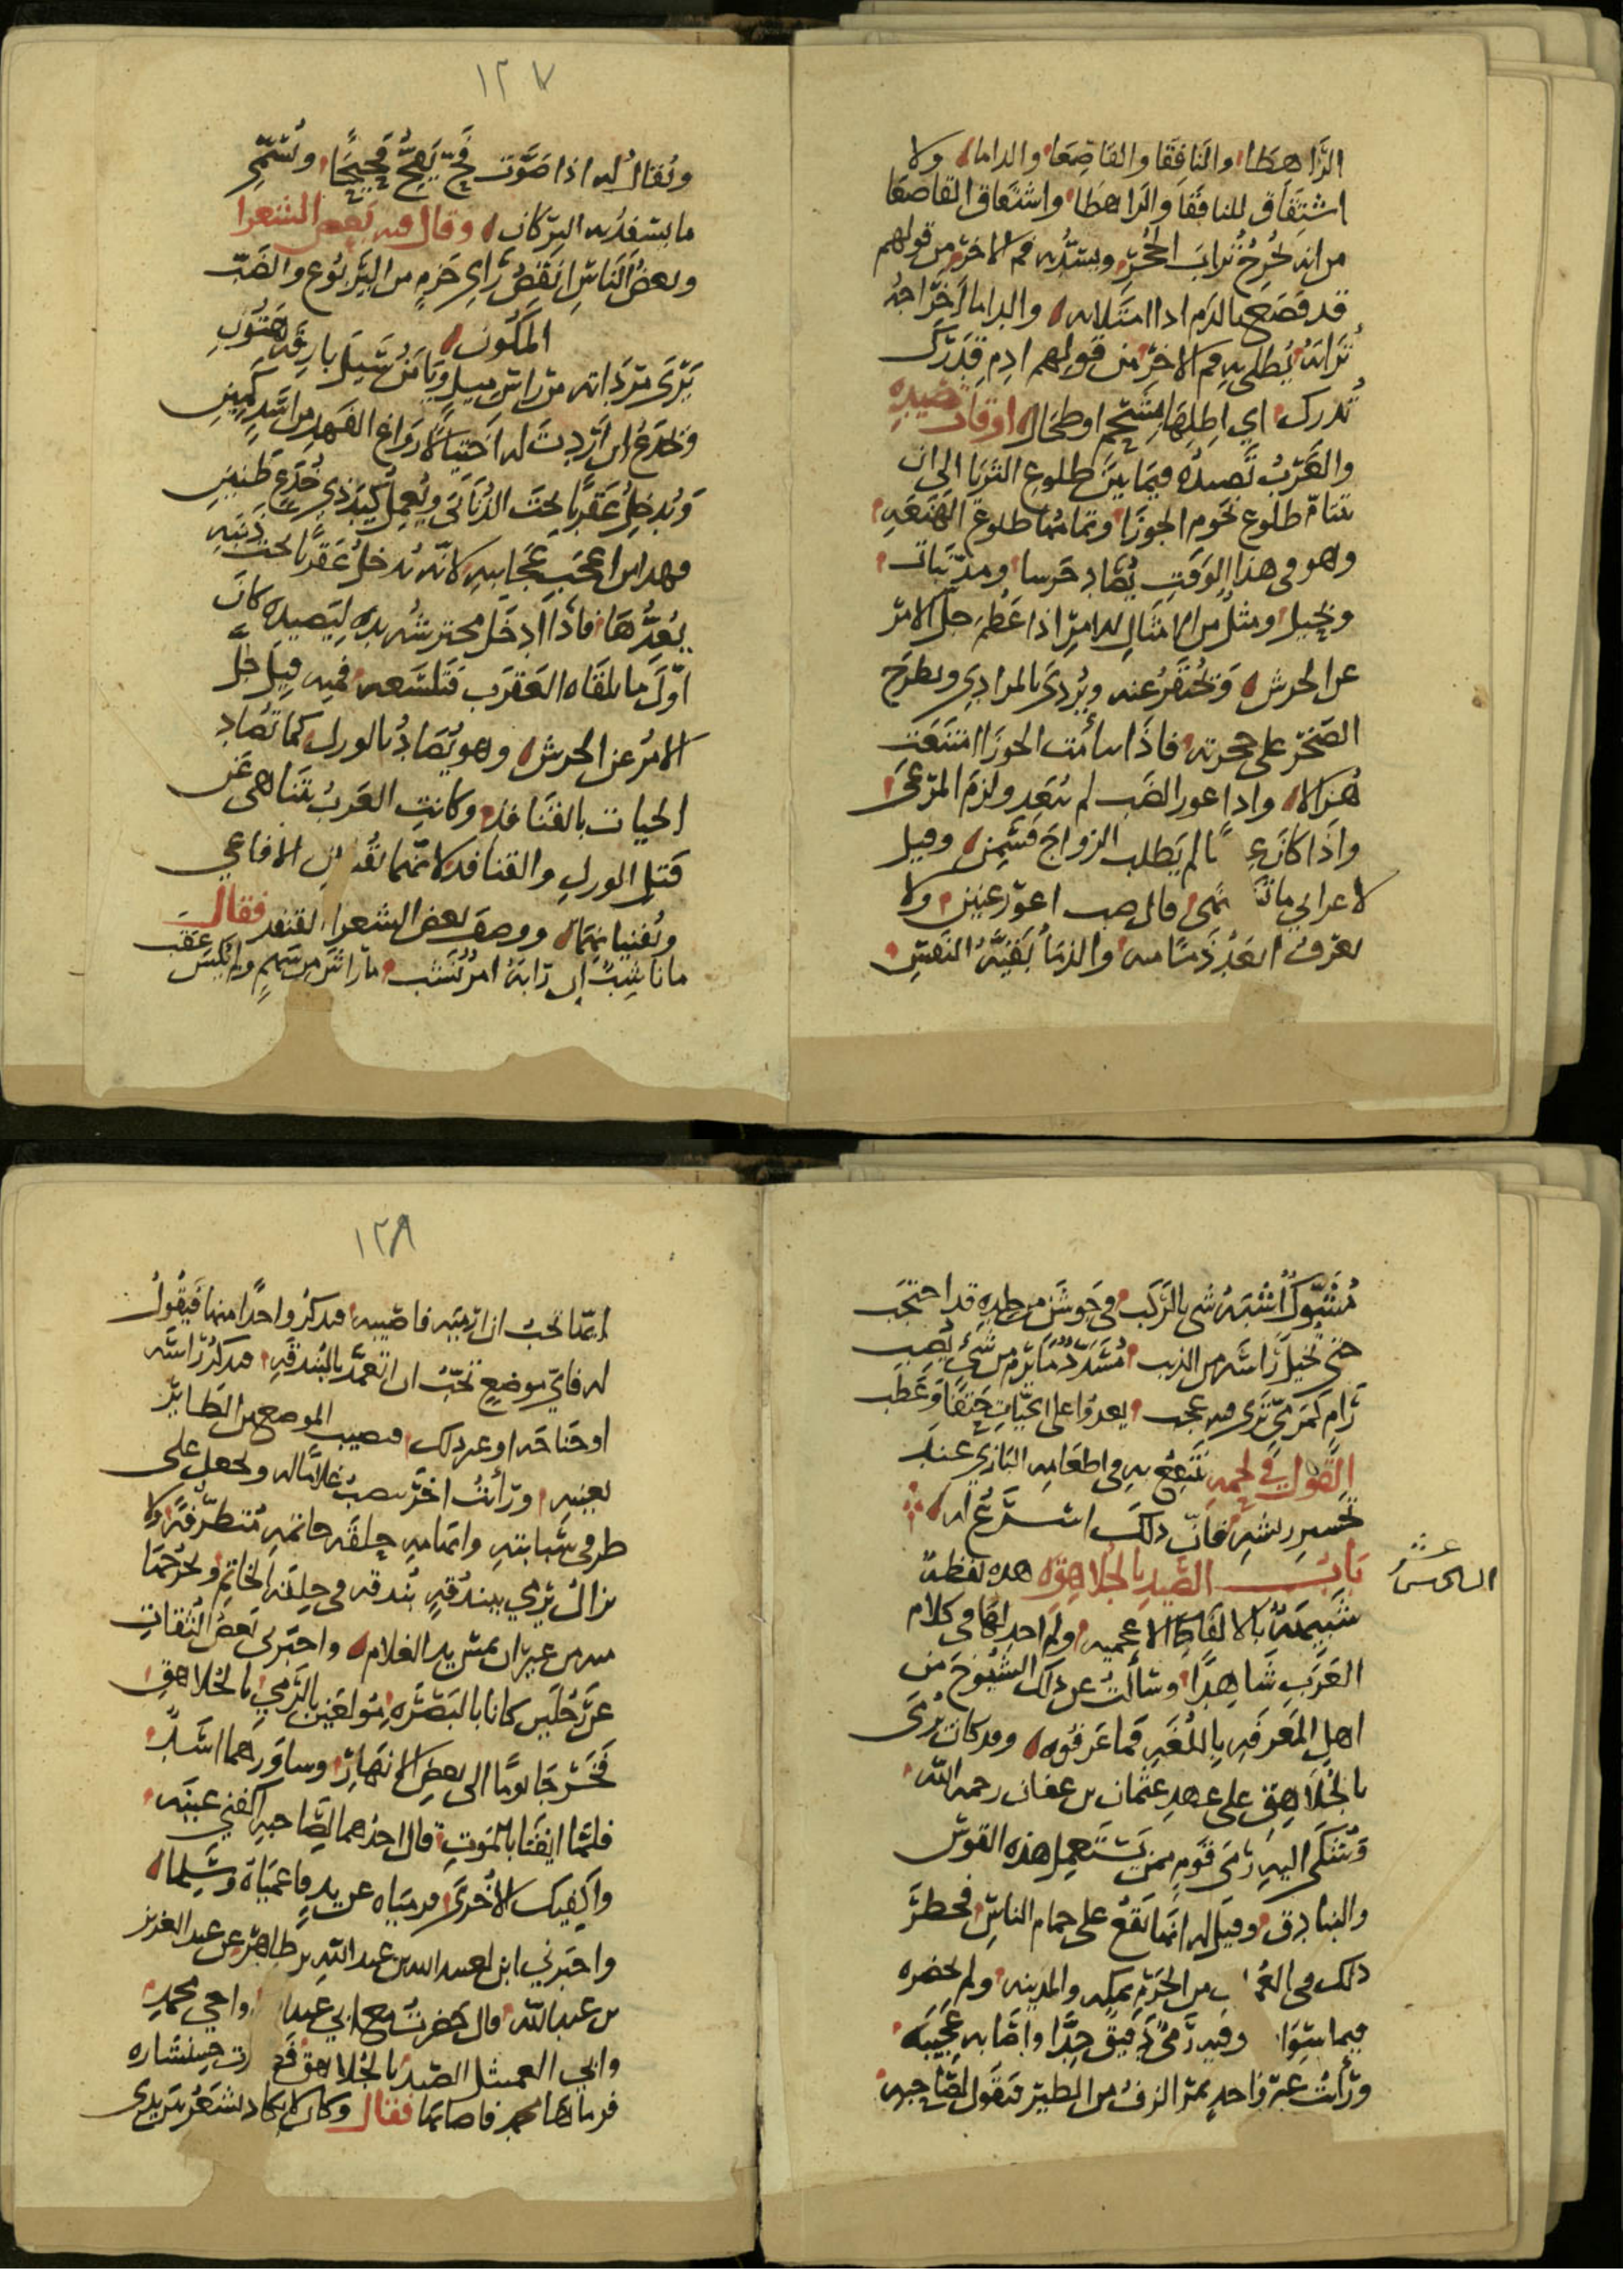 الراهطا والنافقا والقاصعا والداما ولا
اشتقاق للنافقا والراهطا واشتقاق القاصعا
من انه يخرج تراب الجحر ويسد به فم الاخر من قولهم
قد قصع بالدم اذا امتلا به والداما لاخراجه
ترابه يطلى به فم الاخر من قولهم ادم قدرك
تدرك اي اطلها بشحم اوطحال اوقات صيده
والعرب تصيده فيما بين طلوع الثريا الى ان
تتام طلوع نجوم الجوزا وتمامها طلوع الهنعه
وهو في هذا الوقت يصاد حرسا ومذنبات
وبحيل ومثل من الامثال للامر اذا عظم جل الامر
عن الحرش ويحتفر عنه ويردى بالمرادي ويطرح
الصخر على جحرته فاذا سامت الجوزا امتنعت
هزالا واذا عور الضب لم يبعد ولزم المرعى
واذا كان لم يطلب الزواج فسمن وقيل
لاعرابي ما قال ضب اعور عنين ولا
يعرف ابعد ذما منه والذما بقية النفس
١٢٧
ويقال له اذا صوت فح يفح فحيحا ويسمى
ما يسفد به النزكان وقال فيه بعض الشعرا
وبعض الناس انقص راي حزم من اليربوع والضب
المكون
يرى مرداته من راس ميل ويامن سيل بارقة هتون
ويخدع ان اردت له احتيالا رواغ الفهد من اسد كمين
ويدخل عقربا تحت الذنابى ويعمل كيد ذي خدع طنين
وهذا من اعجب عجايبه كانه يدخل عقربا تحت ذنبه
يعدها فاذا ادخل محترشه يده ليصيده كان
اول ما يلقاه العقرب فتلسعه ففيه قيل جل
الامر عن الحرش وهو يصاد بالورل كما تصاد
الحيات بالقنافد وكانت العرب تتناهى عن
قتل الورل والقنافد لانهما الافاعي
ويفنيانها ووصف بعض الشعرا القنفد فقال
ما ناشب ان رابه امر نشب ما راش من سهم ولا يكسى عقب
مشوك اشبه شي بالركب في جوشن من جلده قد احتجب
حتى تخيل راسه من الذنب مسدد ما يرم من شي يصب
رام كمرمي ترى فيه عجب يعدوا على الحيات حتفا وعطب
القول في لحمه ينتفع به في اطعامه البازي عند
تحسير ريشه فان ذلك اسرع له
باب الصيد بالجلاهقه هذه لفظة
شبيهة بالالفاظ الاعجميه ولم اجد لها في كلام
العرب شاهدا وسالت عن ذلك الشيوخ من
اهل المعرفه باللغه فما عرفوه وقد كان يرمى
بالجلاهق على عهد عثمان بن عفان رحمه الله
وشكي اليه رمى قوم ممن يستعمل هذه القوس
والبنادق وقيل له انها تقع على حمام الناس فحظر
ذلك في من الحرم بمكه والمدينه ولم يحضره
فيما سوا وفيه رمى دقيق جدا واصابه عجيبه
ورايت غير واحد يمر الزف من الطير فيقول لصاحبه
١٢٨
ايما تحب ان ارميه فاصيبه فيذكر واحدا منها فيقول
له فاي موضع تحب ان اتعمد بالبندقه فيذكر راسه
او جناحه او غير ذلك فيصيب الموضع من الطاير
بعينه ورايت اخر ينصب غلاما له ويجعل على
طرفي سبابته وابهامه حلقه خاتمه متطرفة ولا
يزال يرمي ببندقه بندقه في حلقة الخاتم ويخرجها
منه من غير ان يمس يد الغلام واخبرني بعض الثقات
عن رجلين كانا بالبصره مولعين بالرمي بالجلاهق
فخرجا يوما الى بعض الانهار وساورهما اسد
فلما ايقنا بالموت قال احدهما لصاحبه اكفني عينه
واكفيك الاخرى فرمياه عن يد فاعمياه وسلما
واخبرني ابن لعبيد الله بن عبد الله بن طاهر عن عبد العزيز
بن عبد الله قال حضرت مع ابي عبد واخي محمد
وابي العميثل الصيد بالجلاهق حبشاره
فرماها محمد فاصابها فقال وكان لا يكاد لشعر يتريدى